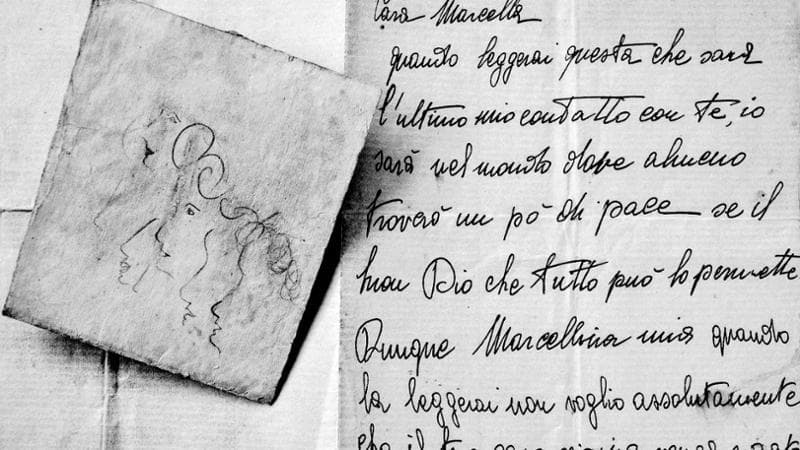 Cara Marcella
quando leggerai questa che sarà
l'ultimo mio contatto con te, io
sarò nel mondo dove almeno
troverò un pò di pace se il
buon Dio che tutto può lo permette
Dunque Marcellina mia quando
la leggerai non voglio assolutamente
che il tuo